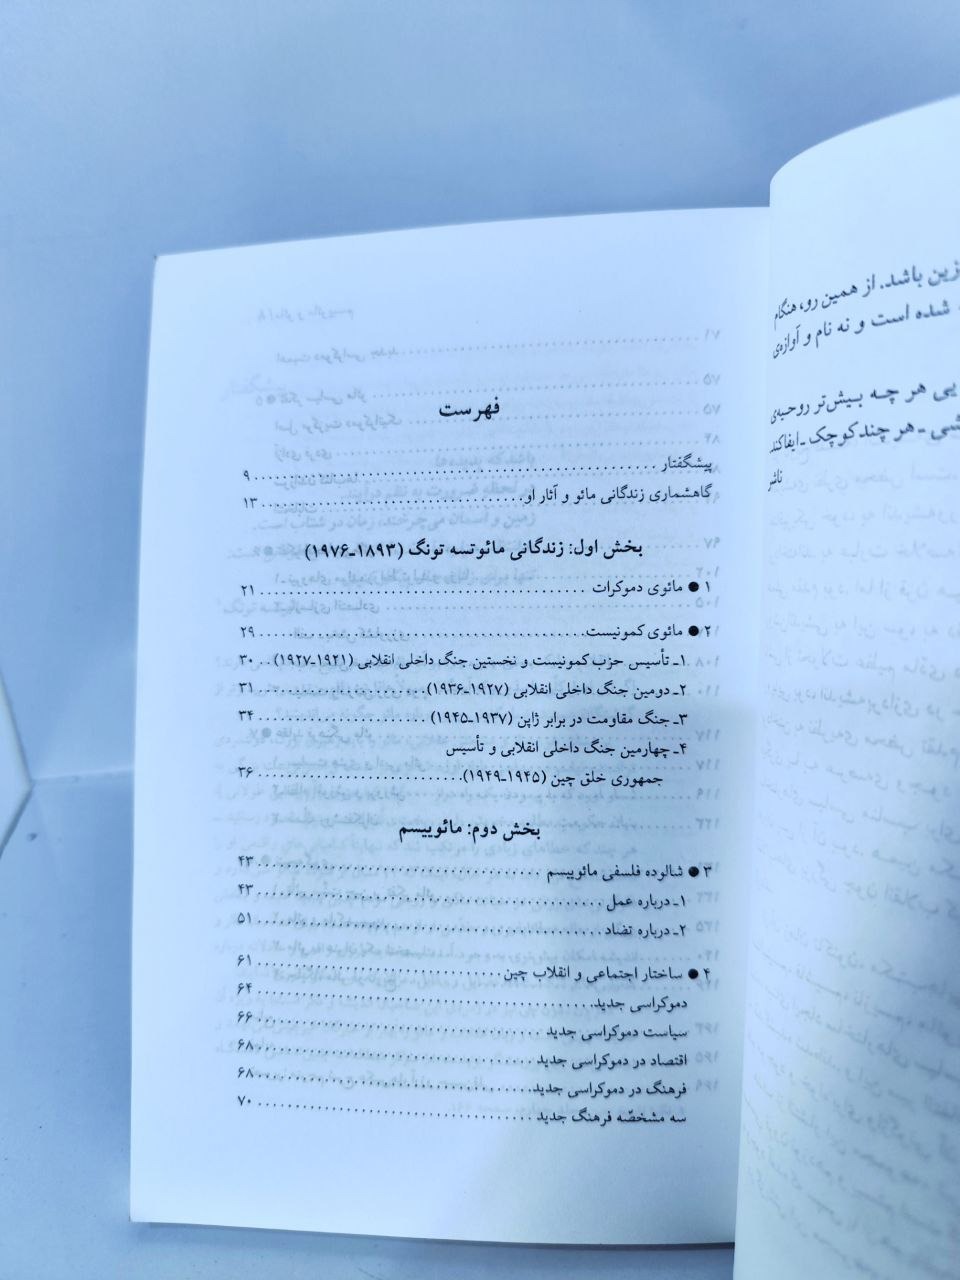 فهرست
پیشگفتار ........ ۹
گاهشماری زندگانی مائو و آثار او ........ ۱۳
بخش اول: زندگانی مائوتسه تونگ (۱۸۹۳ـ۱۹۷۶)
۱ ● مائوی دموکرات ........ ۲۱
۲ ● مائوی کمونیست ........ ۲۹
۱ـ تأسیس حزب کمونیست و نخستین جنگ داخلی انقلابی (۱۹۲۱ـ۱۹۲۷) .. ۳۰
۲ـ دومین جنگ داخلی انقلابی (۱۹۲۷ـ۱۹۳۶) ........ ۳۱
۳ـ جنگ مقاومت در برابر ژاپن (۱۹۳۷ـ۱۹۴۵) ........ ۳۴
۴ـ چهارمین جنگ داخلی انقلابی و تأسیس
جمهوری خلق چین (۱۹۴۵ـ۱۹۴۹) ........ ۳۶
بخش دوم: مائوییسم
۳ ● شالوده فلسفی مائوییسم ........ ۴۳
۱ـ درباره عمل ........ ۴۳
۲ـ درباره تضاد ........ ۵۱
۴ ● ساختار اجتماعی و انقلاب چین ........ ۶۱
دموکراسی جدید ........ ۶۴
سیاست دموکراسی جدید ........ ۶۶
اقتصاد در دموکراسی جدید ........ ۶۸
فرهنگ در دموکراسی جدید ........ ۶۸
سه مشخصّه فرهنگ جدید ........ ۷۰
زین باشد. از همین رو، هنگام
شده است و نه نام و آوازه‌ی
یی هر چه بیش‌تر روحیه‌ی
شی ـ هر چند کوچک ـ ایفا کند.
ناشر